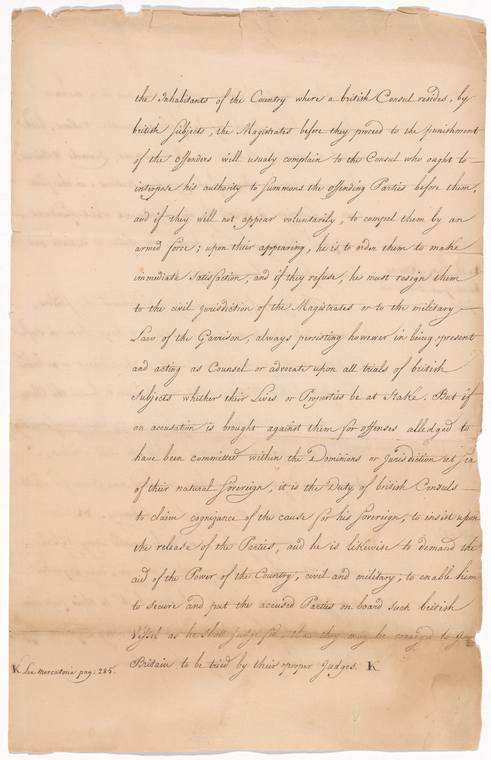 the Inhabitants of the Country where a british Consul resides, by
british Subjects, the Magistrates before they proceed to the punishment
of the Offenders will usualy complain to the Consul who ought to
interpose his authority to Summons the offending Parties before them,
and if they will not appear voluntarily, to compel them by an
armed force; upon their appearing, he is to order them to make
immediate Satisfaction, and if they refuse, he must resign them
to the civil jurisdiction of the Magistrates or to the military
Law of the Garrison, always persisting however in being present
and acting as Counsel or advocate upon all trials of british
Subjects whether their Lives or Properties be at Stake. But if
an accusation is brought against them for offenses alledged to
have been committed within the Dominions or Jurisdiction at Sea
of their natural Sovereign, it is the Duty of british Consuls
to claim cognizance of the cause for his Sovereign, to insist upon
the release of the Parties, and he is likewise to demand the
aid of the Power of the Country, civil and military, to enable him
to secure and put the accused Parties on board such british
Vessel as he shall judge fit, that they may be conveyed to
Britain to be tried by their proper Judges. K
K Lex Mercatoria pag: 285.